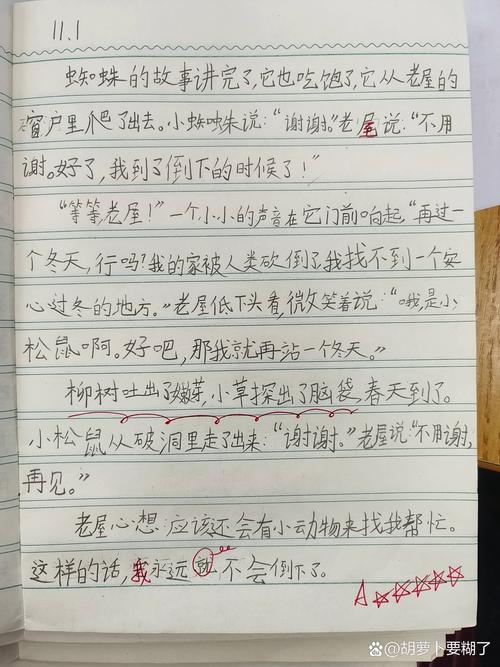 11.1
蜘蛛的故事讲完了,它也吃饱了,它从老屋的
窗户里爬了出去。小蜘蛛说:“谢谢。”老屋说:“不用
谢。好了,我到了倒下的时候了!”
“等等,老屋!”一个小小的声音在它门前响起,“再过一
个冬天,行吗?我的家被人类砍倒了,我找不到一个安
心过冬的地方。”老屋低下头看,微笑着说:“哦,是小
松鼠啊。好吧,那我就再站一个冬天。”
柳树吐出了嫩芽,小草探出了脑袋,春天到了。
小松鼠从破洞里走了出来:“谢谢。”老屋说:“不用谢,
再见。”
老屋心想:应该还会有小动物来找我帮忙。
这样的话,我永远就不会倒下了。
A☆☆☆☆☆
@胡萝卜要糊了